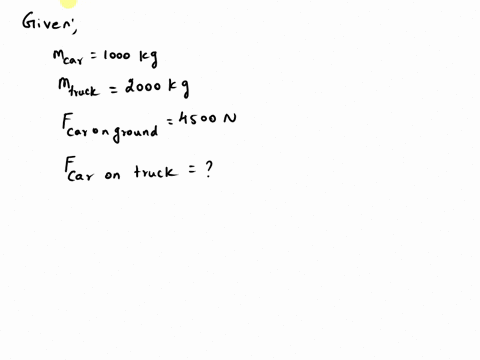 Given;
m car = 1000 kg
m truck = 2000 kg
F car on ground = 4500 N
F car on truck = ?